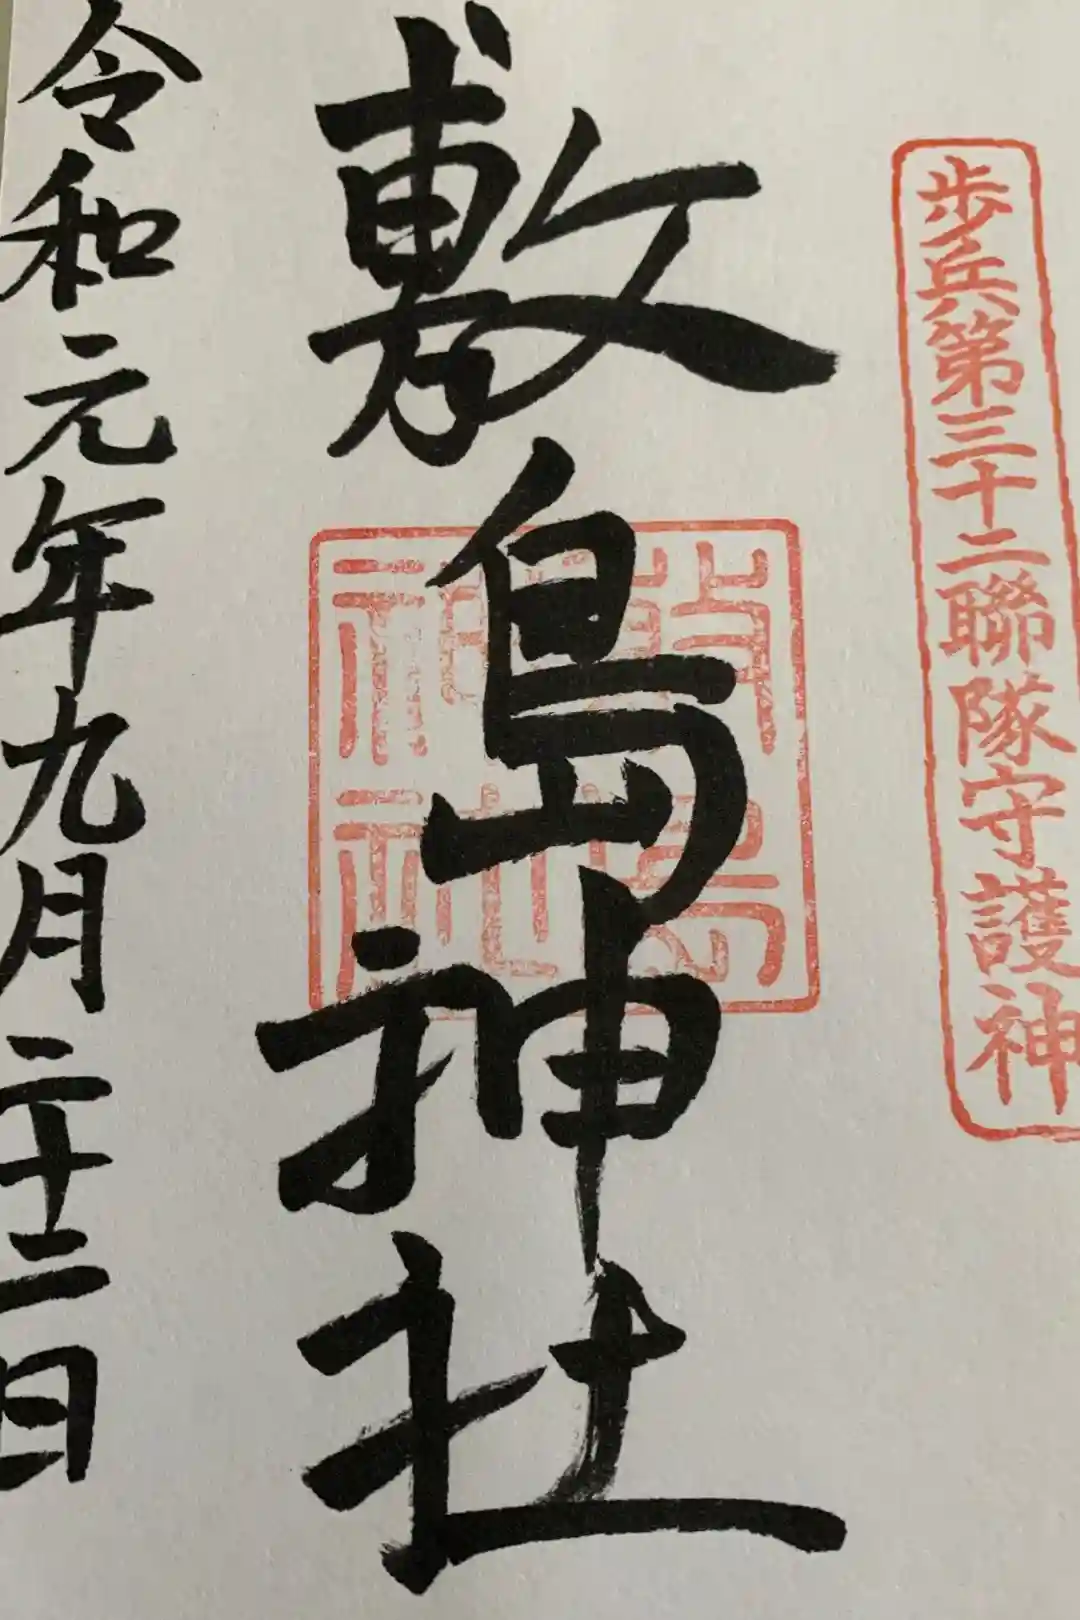 歩兵第三十二聯隊守護神
敷島神社
敷島
神社
令和元年九月二十二日